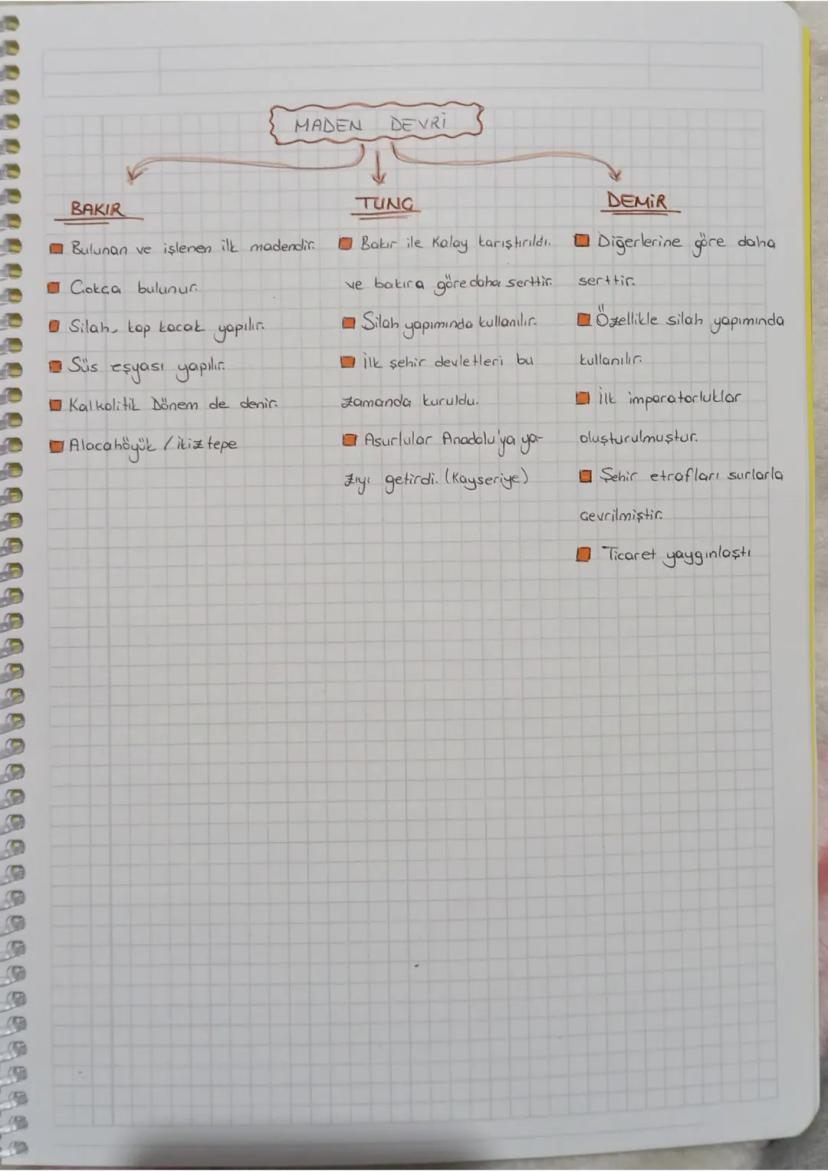 MADEN DEVRİ
BAKIR
Bulunan ve işlenen ilk madendir.
Çokça bulunur.
Silah, kap kacak yapılır.
Süs eşyası yapılır.
Kalkolitik Dönem de denir.
Alacahöyük / ikiztepe
TUNÇ
Bakır ile Kalay karıştırıldı.
ve bakıra göre daha serttir.
Silah yapımında kullanılır.
İlk şehir devletleri bu
zamanda kuruldu.
Asurlular Anadolu'ya ya-
zıyı getirdi. (Kayseriye)
DEMİR
Diğerlerine göre daha
serttir.
Özellikle silah yapımında
kullanılır.
İlk imparatorluklar
oluşturulmuştur.
Şehir etrafları surlarla
çevrilmiştir.
Ticaret yaygınlaştı